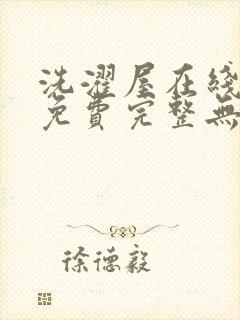 洗濯屋在綫
免費完整無
徐德毅